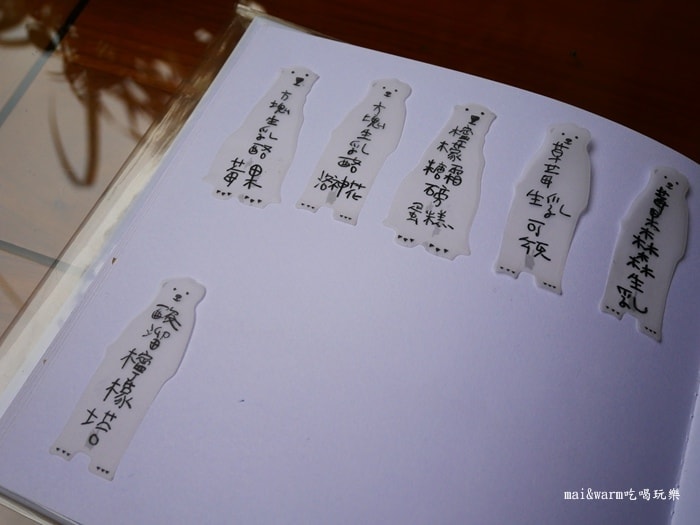 方塊生乳酪
莓果
方塊生乳酪
洛神花
檸檬糖霜
磅蛋糕
草莓生乳
可頌
莓果森林生乳
酸溜檸檬塔。
mai&warm吃喝玩樂